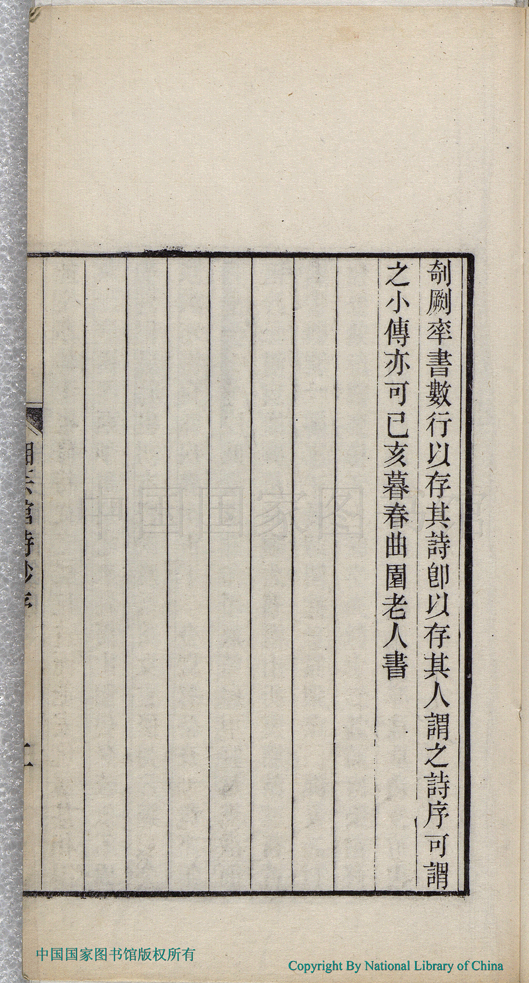 剞劂率書數行以存其詩卽以存其人謂之詩序可謂
之小傳亦可已亥暮春曲園老人書
館詩鈔序
二
中国国家图书馆
中国国家图书馆版权所有
Copyright By National Library of China